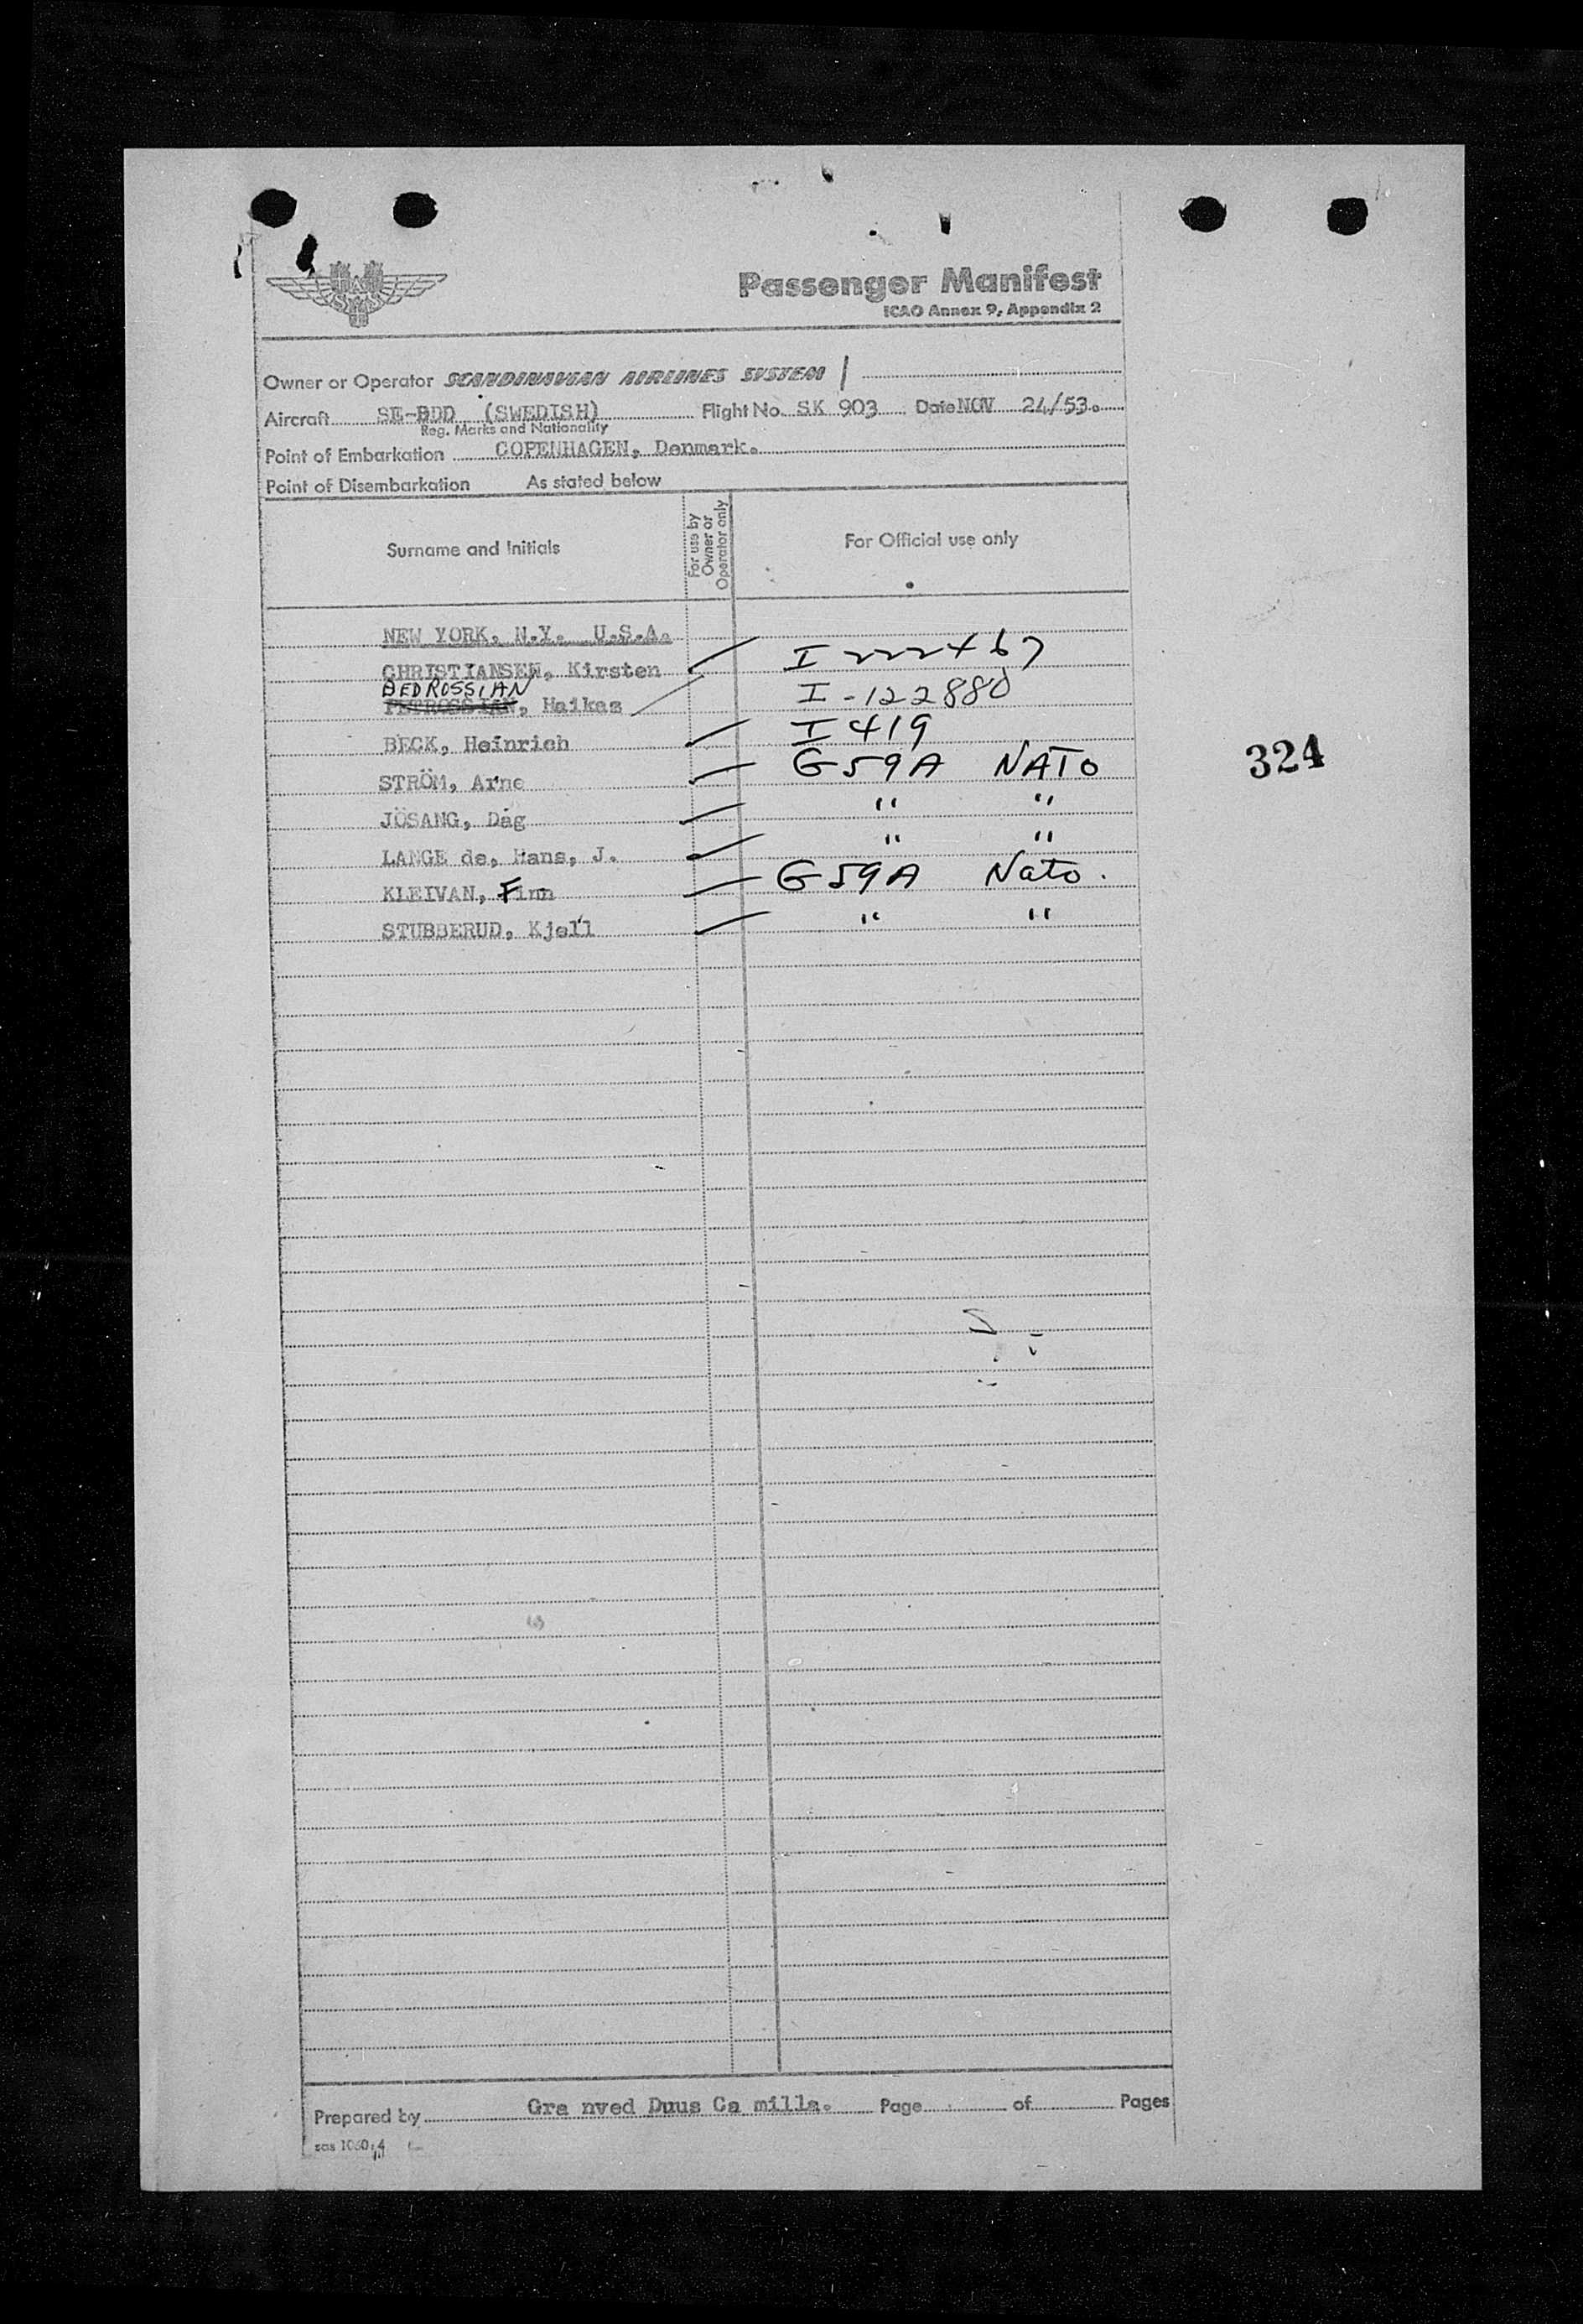 SAS
Passenger Manifest
ICAO Annex 9, Appendix 2
Owner or Operator SCANDINAVIAN AIRLINES SYSTEM
Aircraft SE-BDD (SWEDISH) Flight No. SK 903 Date NOV 24/53.
Reg. Marks and Nationality
Point of Embarkation COPENHAGEN, Denmark.
Point of Disembarkation As stated below
Surname and Initials For use by Owner or Operator only For Official use only
NEW YORK, N.Y. U.S.A.
CHRISTIANSEN, Kirsten I 222467
BEDROSSIAN
PETROSSIAN, Haikas I-122880
BECK, Heinrich I 419
STRÖM, Arne G 59A NATO
324
JÖSANG, Dag " "
LANGE de, Hans, J. " "
KLEIVAN, Finn G 59A Nato.
STUBBERUD, Kjell " "
Prepared by Gra nved Duus Ca milla. Page of Pages
sas 1060:4